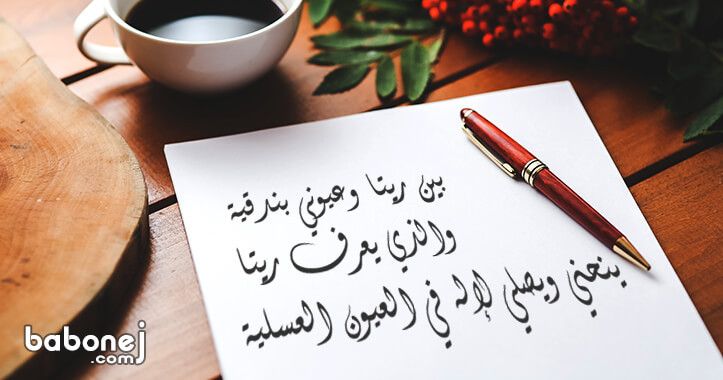 بين ريتا وعيوني بندقية
والذي يعرف ريتا
ينحني ويصلي لإله في العيون العسلية
babonej
.com